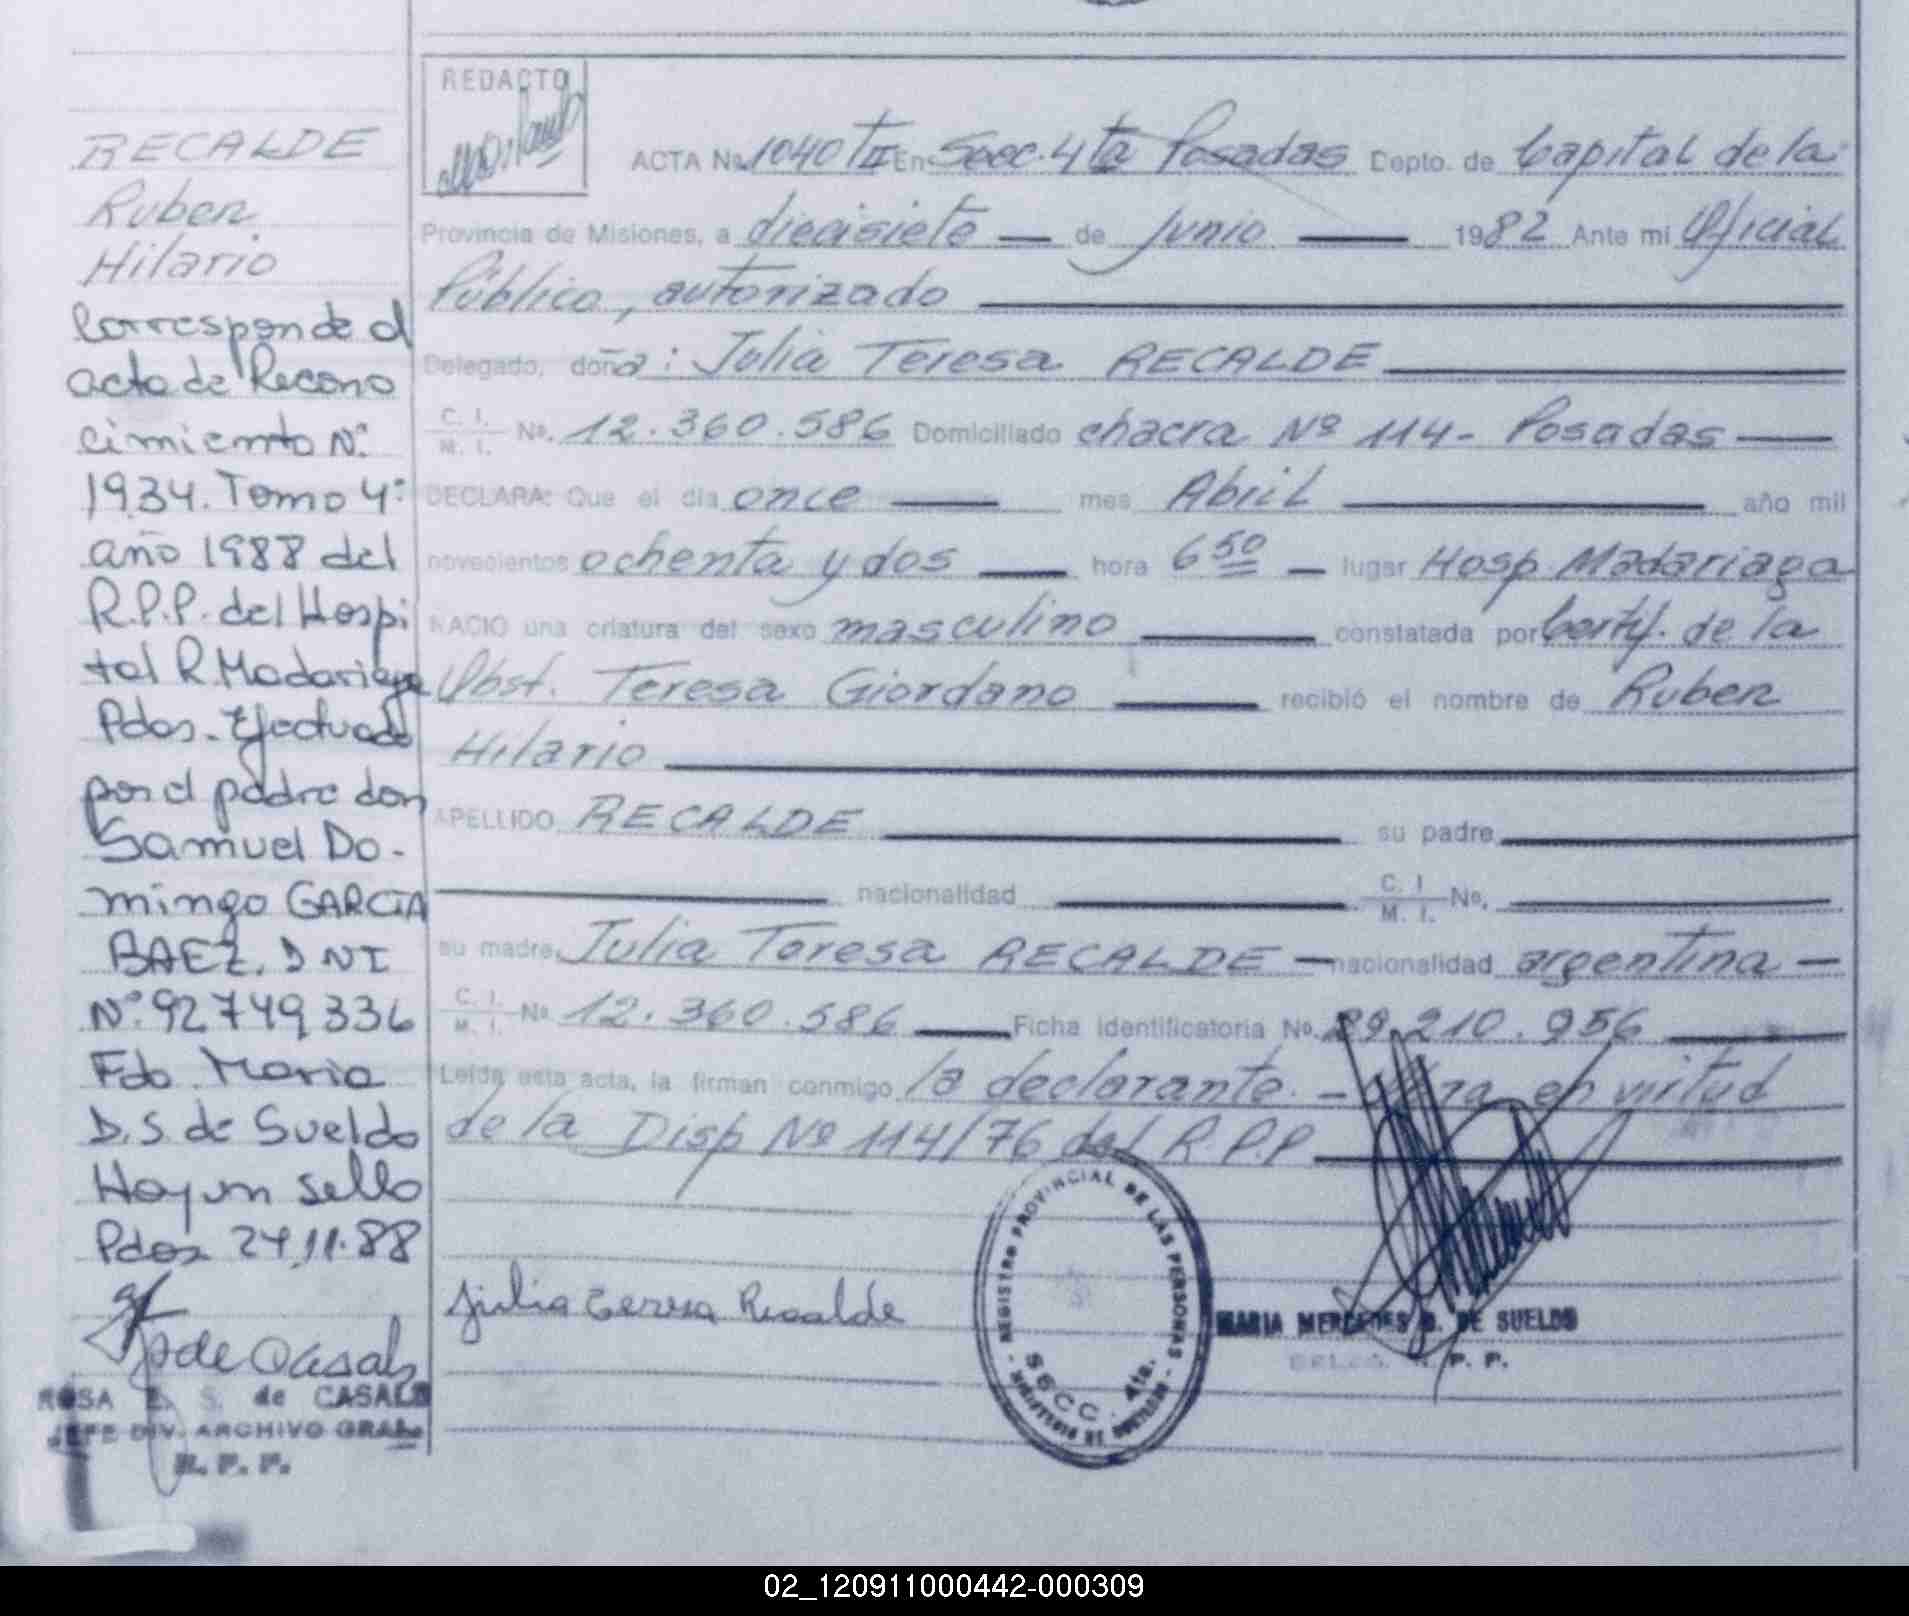 RECALDE
Ruben
Hilario
Corresponde al
acta de Recono
cimiento Nº
1934. Tomo 4º
año 1988 del
R.P.P. del Hospi
tal R. Madariaga
Pdas. Efectuado
por el padre don
Samuel Do-
mingo GARCIA
BAEZ. DNI
Nº 92749336
Fdo. Maria
D.S. de Sueldo
Hay un sello
Pdas 24.11.88
de Casals
ROSA E. S. de CASALS
JEFE DIV. ARCHIVO GRAL.
R. P. P.
REDACTO
ACTA Nº 1040 TII En Secc. 4ta Posadas Depto. de Capital de la
Provincia de Misiones, a diecisiete — de junio — 1982 Ante mi Oficial
Público, autorizado —
Delegado, doña : Julia Teresa RECALDE —
C. I. / M. I. Nº. 12.360.586 Domiciliado chacra Nº 114- Posadas —
DECLARA: Que el día once — mes Abril — año mil
novecientos ochenta y dos — hora 6 50 — lugar Hosp Madariaga
NACIO una criatura del sexo masculino — constatada por Certif. de la
Obst. Teresa Giordano — recibió el nombre de Ruben
Hilario —
APELLIDO RECALDE — su padre —
— nacionalidad — C. I / M. I. Nº. —
su madre, Julia Teresa RECALDE — nacionalidad argentina —
C. I. / M. I. Nº 12.360.586 — Ficha identificatoria Nº. 29.210.956 —
Leída esta acta, la firman conmigo la declarante. — en virtud
de la Disp Nº 114/76 del R.P.P —
Julia Teresa Recalde
REGISTRO PROVINCIAL DE LAS PERSONAS
SECC. 4ta.
MARIA MERCEDES S. DE SUELDO
DELEG. R. P. P.
02_120911000442-000309